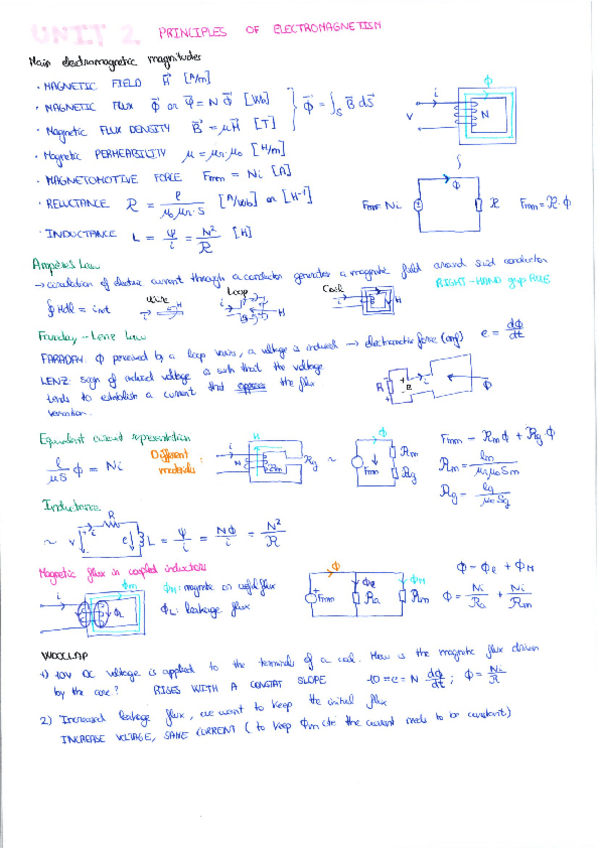 UNIT 2 PRINCIPLES OF ELECTROMAGNETISM
Main electromagnetic magnitudes
· MAGNETIC FIELD H⃗ [A/m]
· MAGNETIC FLUX Φ⃗ or Ψ⃗ = N Φ⃗ [Wb] } Φ⃗ = ∫s B⃗ dS⃗
· Magnetic FLUX DENSITY B⃗ = μH⃗ [T]
· Magnetic PERMEABILITY μ = μr μ0 [H/m]
· MAGNETOMOTIVE FORCE Fmm = Ni [A]
· RELUCTANCE R = l / μ0 μr · S [A/Wb] or [H⁻¹]
· INDUCTANCE L = Ψ/i = N²/R [H]
i Φ V N
Fmm= Ni Φ R Fmm = R·Φ
Ampère's Law
→ circulation of electric current through a conductor generates a magnetic field around said conductor
RIGHT-HAND grip RULE
∮Hdl = i Wire i H Loop i H Coil H
Faraday - Lenz Law
FARADAY: Φ perceived by a loop varies, a voltage is induced → electromotive force (emf) e = dΦ/dt
LENZ: sign of induced voltage is such that the voltage
tends to establish a current that opposes the flux
variation.
R e i Φ
Equivalent circuit representation
l/μS Φ = Ni
Different materials:
i N Rm Rg ~ Φ Fmm Rm Rg
Fmm = RmΦ + Rg Φ
Rm = lm / μrμ0Sm
Rg = lg / μ0Sg
Inductance
~ V i R e L = Ψ/i = NΦ/i = N²/R
Magnetic flux in coupled inductors
i Φm ΦL
ΦM: magnetic or useful flux
ΦL: leakage flux
Φ Fmm Φl Rl ΦM Rm
Φ = Φl + ΦM
Φ = Ni/Rl + Ni/Rm
WOOCLAP
1) 10V DC voltage is applied to the terminals of a coil. How is the magnetic flux driven
by the core? RISES WITH A CONSTAT SLOPE 10 = e = N dΦ/dt ; Φ = Ni/R
2) Increased leakage flux, we want to keep the initial flux
INCREASE VOLTAGE, SAME CURRENT ( to keep Φm cte the current needs to be constant)